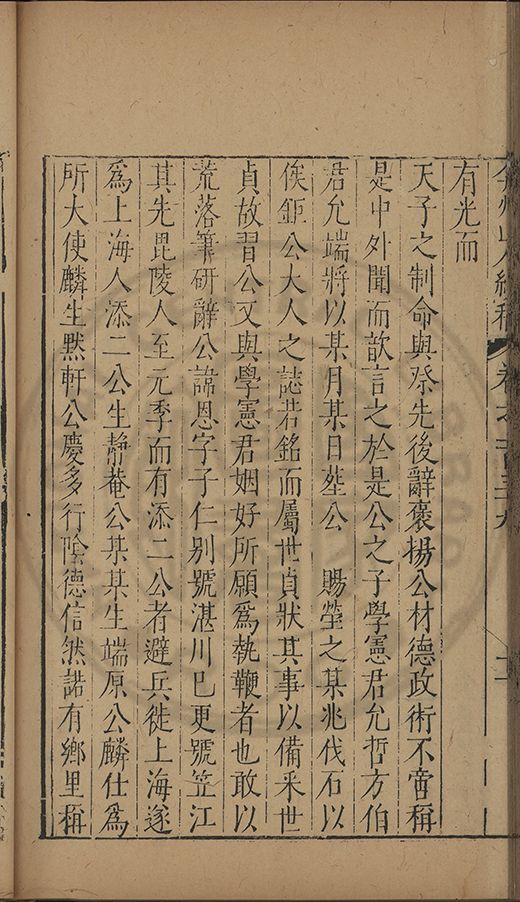 弇州山人續稿 卷之一百三十九
有光而
天子之制命與祭先後辭褒揚公材德政術不啻稱
是中外聞而歆言之於是公之子學憲君允哲方伯
君允端將以某月某日塟公 賜塋之某兆伐石以
俟鉅公大人之誌若銘而屬世貞狀其事以備采世
貞故習公又與學憲君姻好所願爲執鞭者也敢以
荒落筆研辭公諱恩字子仁别號湛川已更號笠江
其先毘陵人至元季而有添二公者避兵徙上海遂
爲上海人添二公生靜菴公某某生端原公麟仕爲
所大使麟生黙軒公慶多行陰德信然諾有鄉里稱